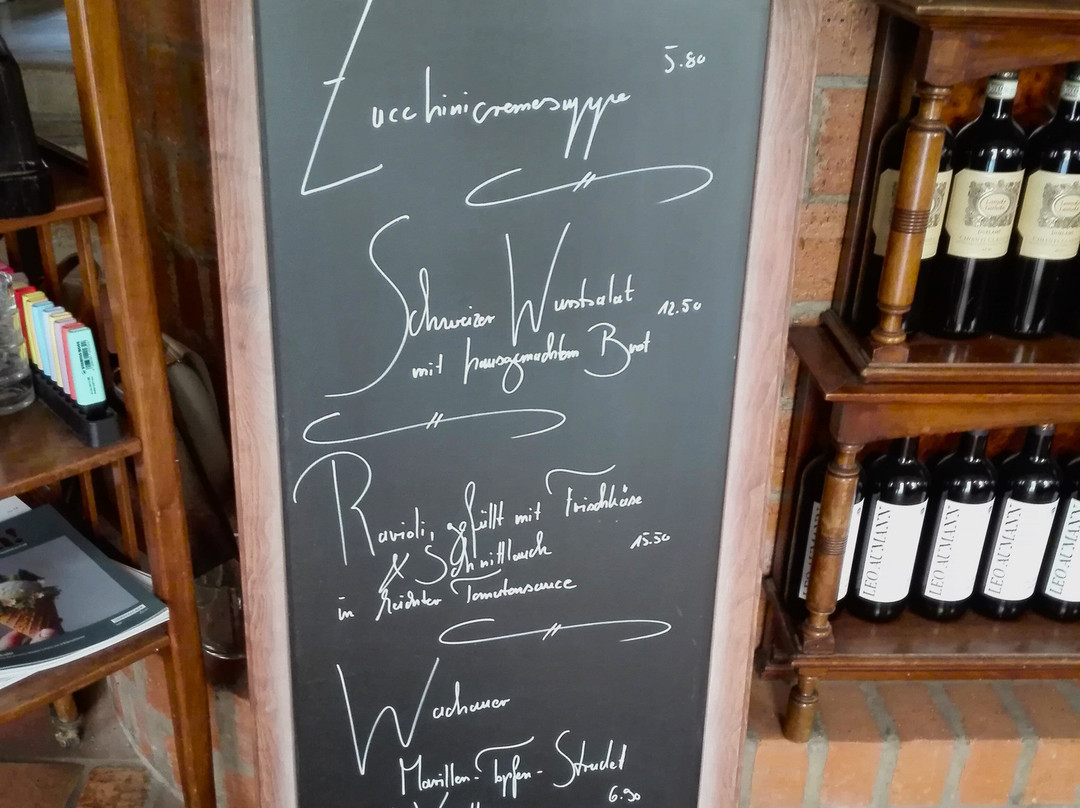 5.80
Zucchinicremesuppe
Schweizer Wurstsalat
12.50
mit hausgemachtem Brot
Ravioli, gefüllt mit Frischkäse
& Schnittlauch
15.50
in leichter Tomatensauce
Wachauer
Marillen-Topfen-Strudel
6.90
LEO AUMANN
LEO AUMANN
LEO AUMANN
LEO AUMANN